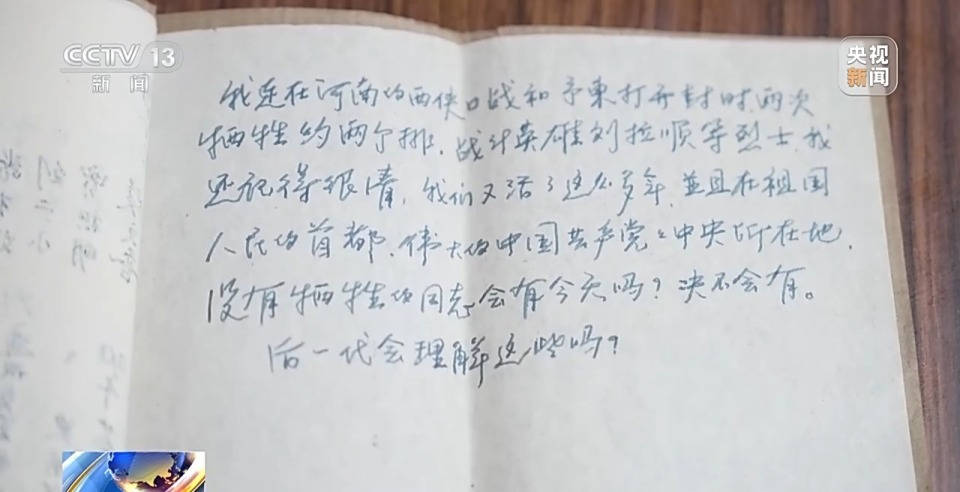 CCTV 13
新闻
央视
新闻
我连在河南的西侠口战和予東打开封时两次
牺牲约两个排.战斗英雄刘拉顺等烈士.我
还记得很清,我们又活了这么多年,並且在祖国
人民的首都、伟大的中国共产党〻中央所在地.
没有牺牲的同志会有今天吗?决不会有。
后一代会理解这些吗?